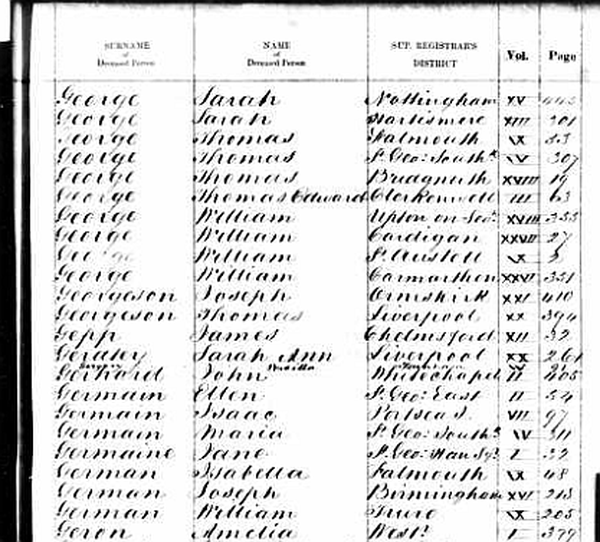 SURNAME of Deceased Person NAME of Deceased Person SUP. REGISTRAR'S DISTRICT Vol. Page
George Sarah Nottingham XV 443
George Sarah Hartismere XIII 301
George Thomas Falmouth IX 53
George Thomas St Geo: South.k IV 307
George Thomas Bridgnorth XVIII 19
George Thomas Edward Clerkenwell III 63
George William Upton on Sev.n XVIII 355
George William Cardigan XXVII 27
George William St Austell IX 2
George William Carmarthen XXVI 351
Georgeson Joseph Ormskirk XXI 410
Georgeson Thomas Liverpool XX 394
Gepp James Chelmsford XII 32
Geraley Sarah Ann Liverpool XX 261
Gerhard John Whitechapel II 405
Germain Ellen St Geo: East II 54
Germain Isaac Portsea I. VII 97
Germain Maria St Geo: South.k IV 311
Germaine Jane St Geo: Han Sq. I 32
German Isabella Falmouth IX 48
German Joseph Birmingham XVI 213
German William Truro IX 205
Geron Amelia West.r I 379